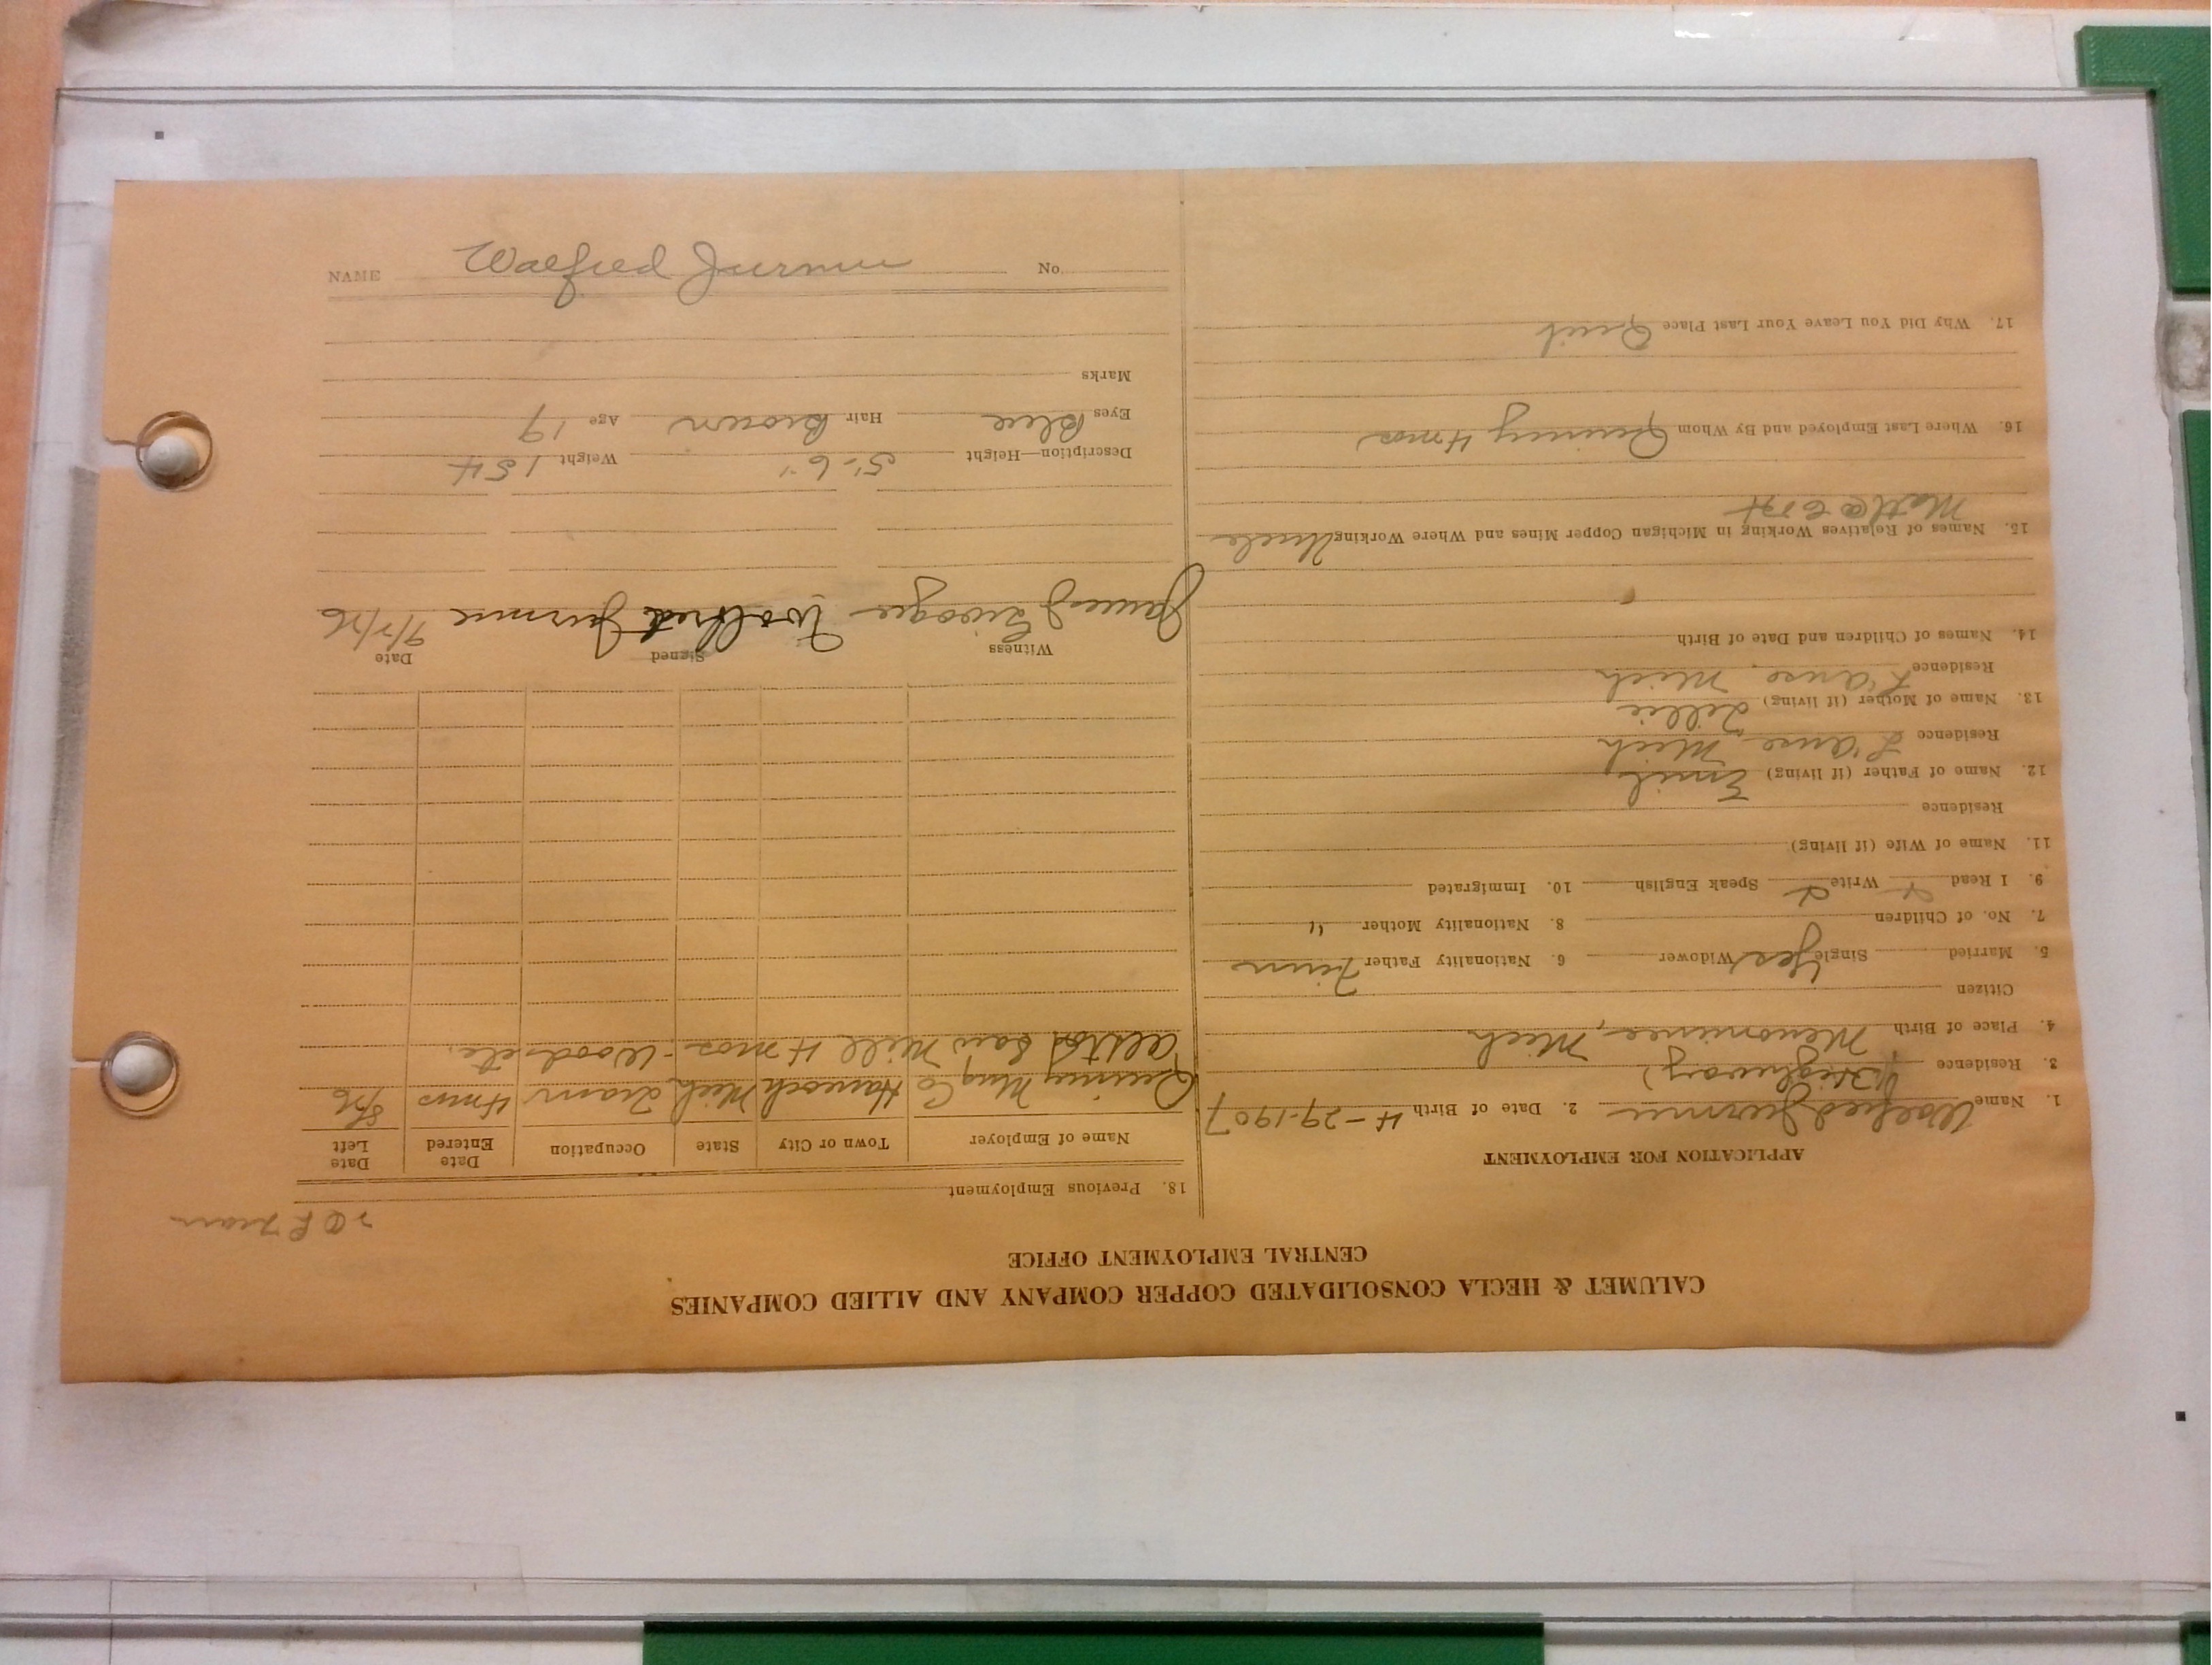 CALUMET & HECLA CONSOLIDATED COPPER COMPANY AND ALLIED COMPANIES
CENTRAL EMPLOYMENT OFFICE
APPLICATION FOR EMPLOYMENT
1. Name Walfred Jurmu 2. Date of Birth 4-29-1907
3. Residence
4. Place of Birth Menominee, Mich
Citizen
5. Married Single Yes Widower 6. Nationality Father Finn
7. No. of Children 8. Nationality Mother "
9. I Read Write Speak English 10. Immigrated
11. Name of Wife (if living)
Residence
12. Name of Father (if living) Emil
Residence L'anse Mich
13. Name of Mother (if living) Lillie
Residence L'anse, Mich
14. Names of Children and Date of Birth
15. Names of Relatives Working in Michigan Copper Mines and Where Working Uncle
Matt @
16. Where Last Employed and By Whom Quincy 4 mos
17. Why Did You Leave Your Last Place Quit
18. Previous Employment
Name of Employer Town or City State Occupation Date Entered Date Left
Quincy Mng Co Hancock Mich Tram 4 mos 8/26
Alston Saw Mill 4 mos - Woods etc.
Witness Signed Date
James Walfred Jurmu 9/7/26
Description—Height 5'-6" Weight 154
Eyes Blue Hair Brown Age 19
Marks
NAME Walfred Jurmu No.